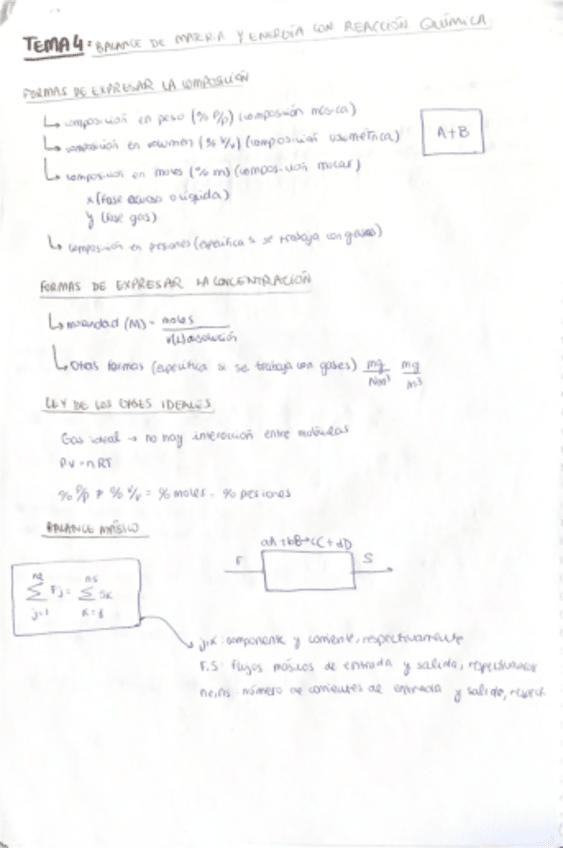 TEMA 4: BALANCE DE MATERIA Y ENERGÍA CON REACCIÓN QUÍMICA
FORMAS DE EXPRESAR LA COMPOSICIÓN
↳ composición en peso (% P/p) (composición másica)
↳ composición en volumen (% V/v) (composición volumétrica)
A+B
↳ composición en moles (% m) (composición molar)
x (fase acuosa o líquida)
y (fase gas)
↳ composición en presiones (específica si se trabaja con gases)
FORMAS DE EXPRESAR LA CONCENTRACIÓN
↳ molaridad (M) = moles / V(L) disolución
↳ Otras formas (específica si se trabaja con gases) mg/Nm³ mg/m³
LEY DE LOS GASES IDEALES
Gas ideal → no hay interacción entre moléculas
PV = nRT
% P/p ≠ % V/v = % moles = % presiones
BALANCE MÁSICO
aA + bB → cC + dD
F S
ne ∑ j=1 Fj = ns ∑ k=1 Sk
j,k: componente y corriente, respectivamente
F,S: flujos másicos de entrada y salida, respectivamente
ne,ns: número de corrientes de entrada y salida, respect.